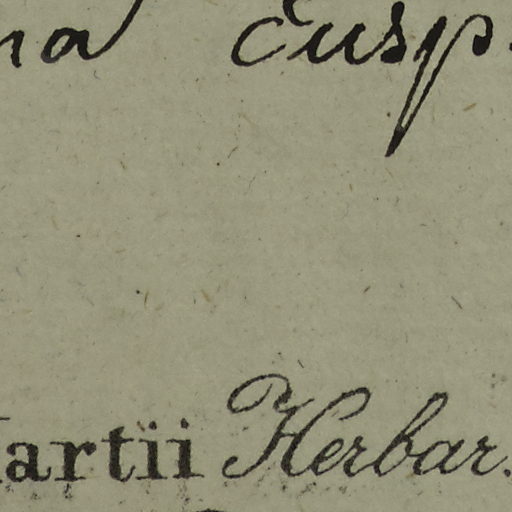 na cusp
artii Herbar.